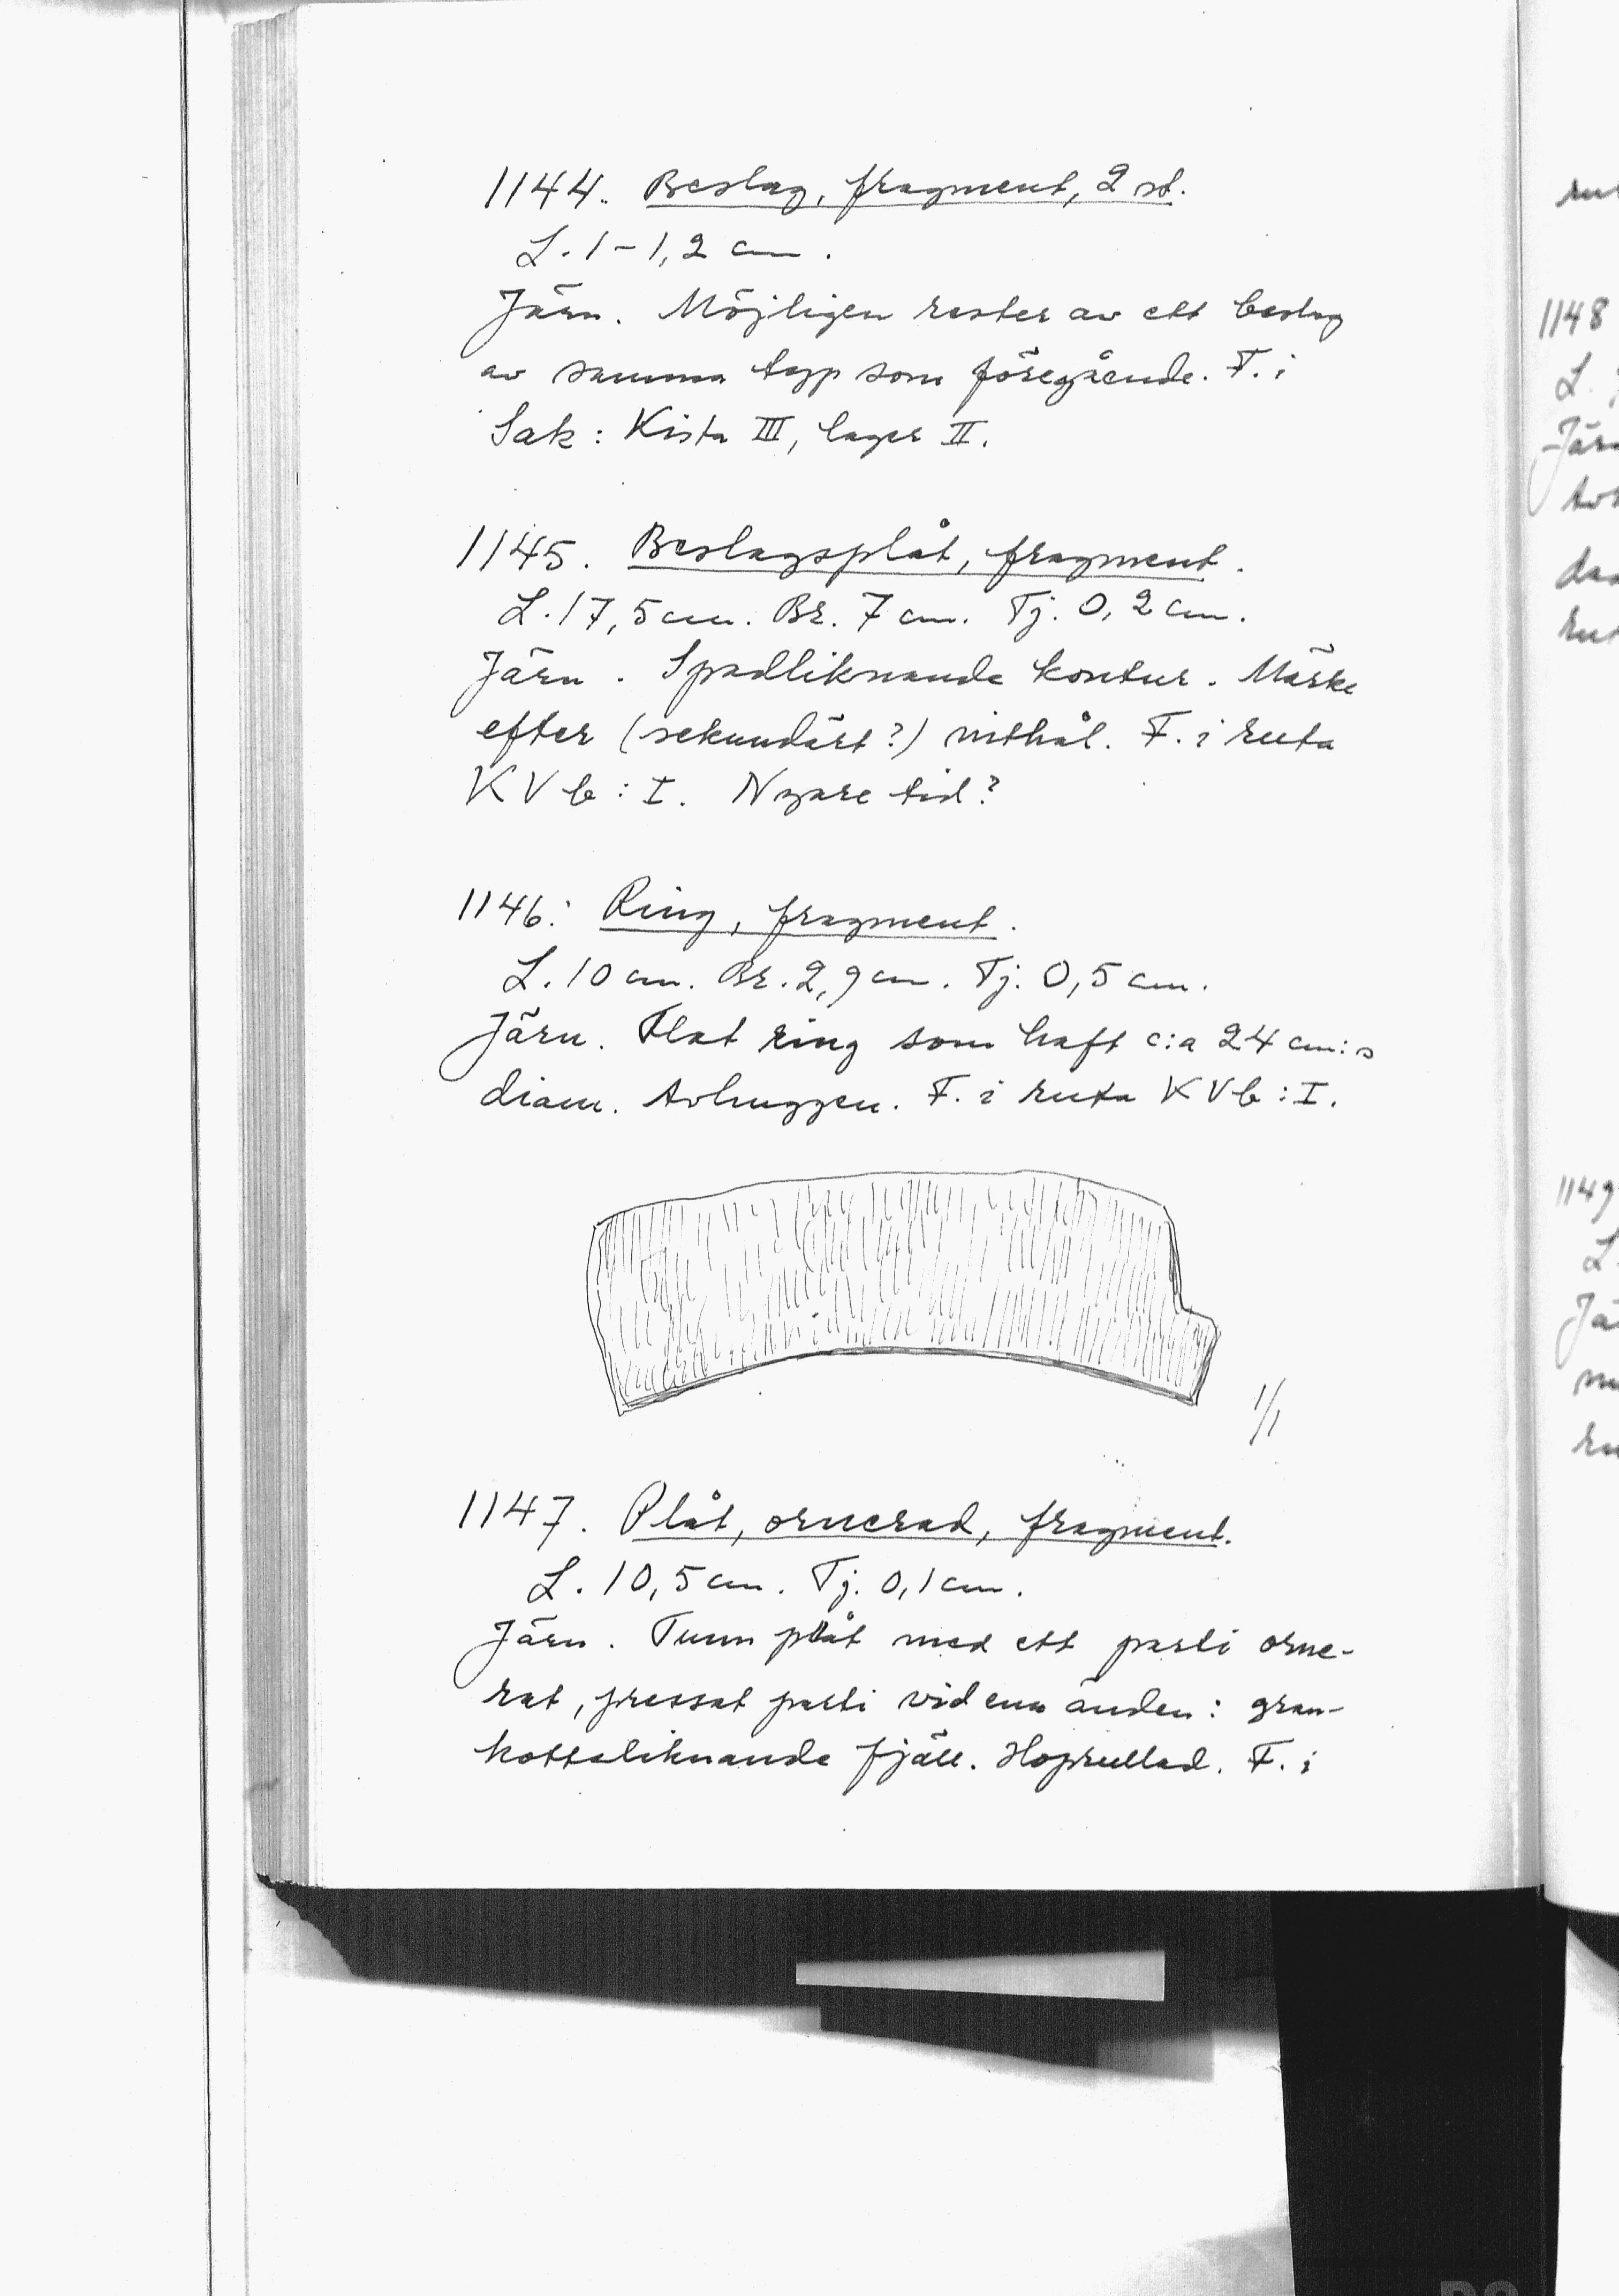 1144. Beslag, fragment, 2 st.
L. 1-1,2 cm.
Järn. Möjligen rester av ett beslag
av samma typ som föregående. F. i
Sak: Kista III, lager II.
1145. Beslagsplåt, fragment.
L. 17,5 cm. Br. 7 cm. Tj. 0,2 cm.
Järn. Spadliknande kontur. Märke
efter (sekundärt?) nithål. F. i ruta
K V b : I. Nyare tid?
1146. Ring, fragment.
L. 10 cm. Br. 2,9 cm. Tj. 0,5 cm.
Järn. Flat ring som haft c:a 24 cm:s
diam. Avhuggen. F. i ruta K V b : I.
1/1
1147. Plåt, ornerad, fragment.
L. 10,5 cm. Tj. 0,1 cm.
Järn. Tunn plåt med ett parti orne-
rat, pressat parti vid ena änden: gran-
kotteliknande fjäll. Hoprullad. F. i
1148
L.
Järn
1149
L.